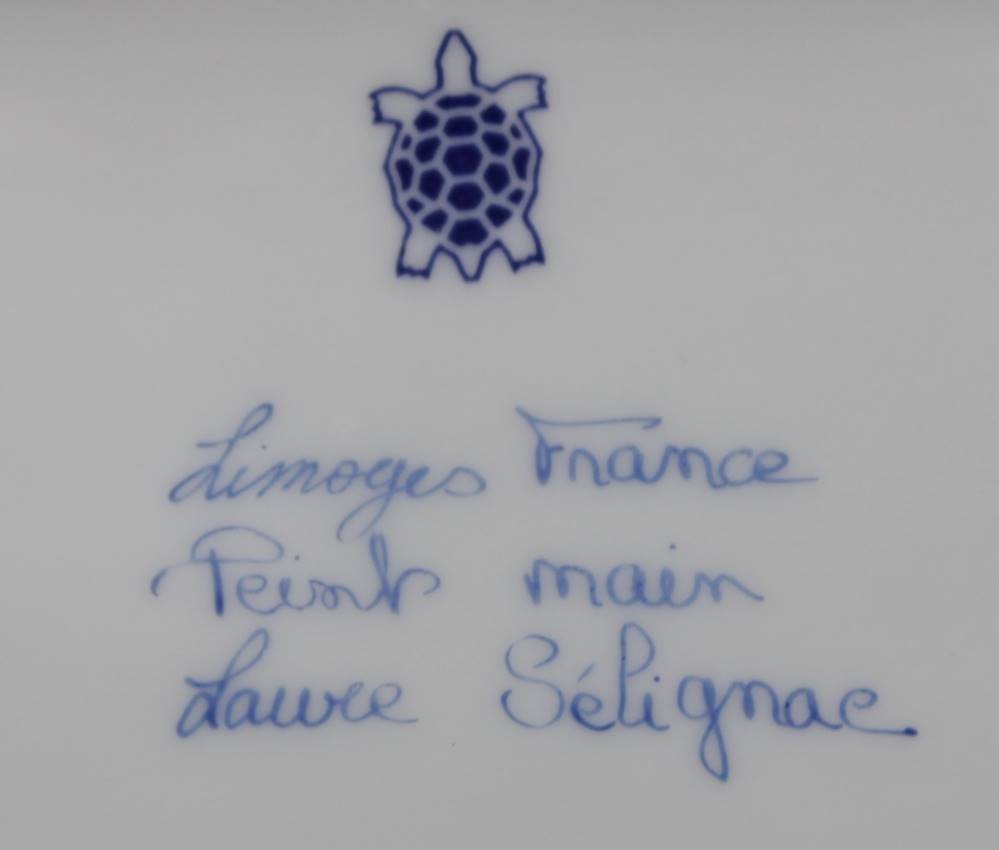 Limoges France
Peint main
Laure Sélignac